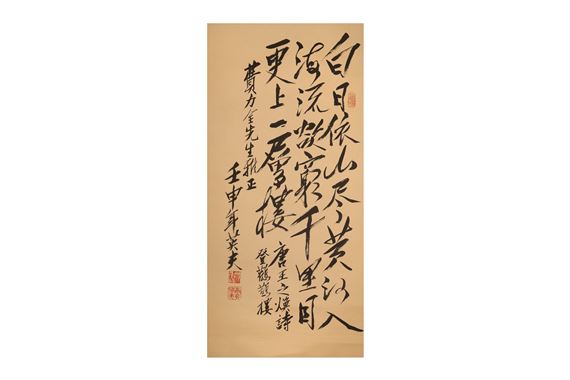 白日依山尽黄河入
海流欲窮千里目
更上一層樓
唐王之焕詩
登鸛鵲樓
費力全先生雅正
壬申年英夫